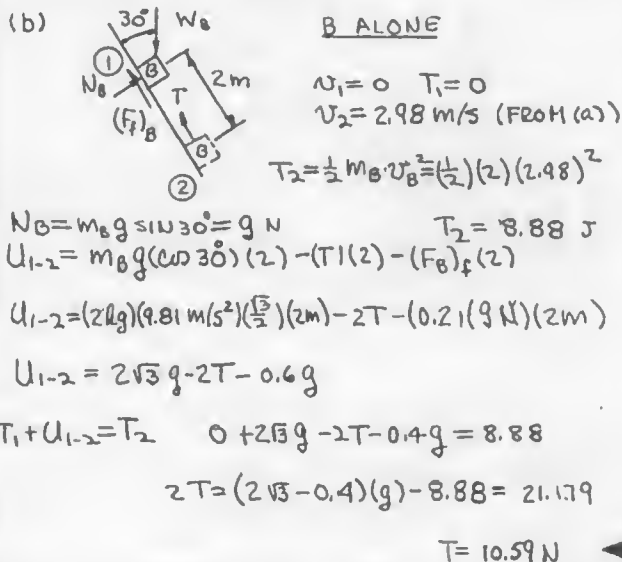 (b) 30° W_B B ALONE
① B
N_B 2m
T
(F_f)_B
B
②
v₁=0 T₁=0
v₂=2.98 m/s (FROM (a))
T₂=½ m_B v_B²=(½)(2)(2.98)²
N_B=m_B g SIN 30°= g N T₂= 8.88 J
U₁₋₂= m_B g(cos 30°)(2) -(T)(2)-(F_B)_f(2)
U₁₋₂=(2kg)(9.81 m/s²)(√3/2)(2m)-2T-(0.2)(g N)(2m)
U₁₋₂ = 2√3 g-2T-0.6g
T₁+U₁₋₂=T₂ 0+2√3 g -2T-0.4g = 8.88
2T=(2√3-0.4)(g)-8.88= 21.179
T= 10.59 N